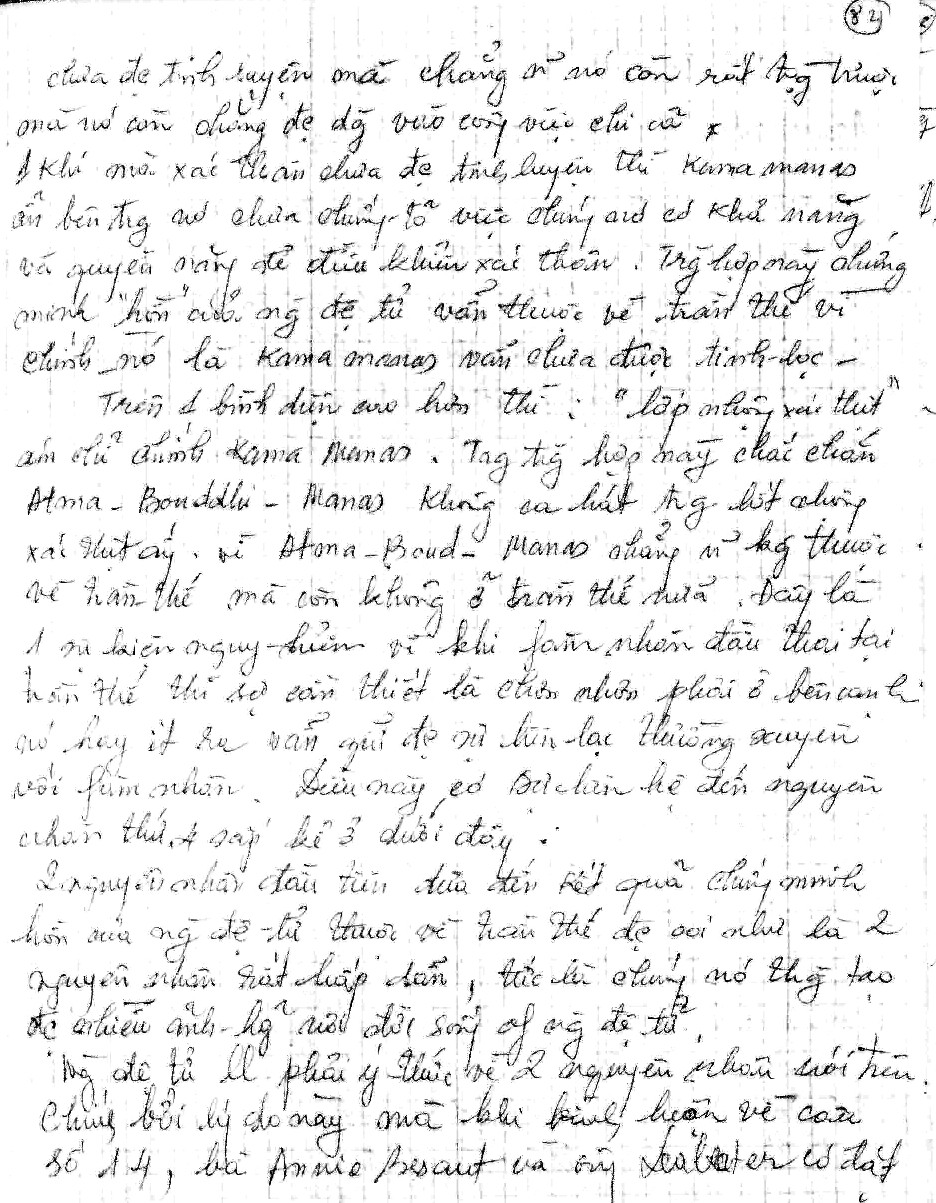 82
chưa đc tinh luyện mà chẳng n~ nó còn rất tg trược
mà nó còn chẳng đc dg vào công việc chi cả
1 Khi mà xác thân chưa đc tinh luyện thì Kama manas
ẩn bên trg nó chưa chứng-tỏ việc chúng nó có khả năng
và quyền năng để điều khiển xác thân. Trg hợp này chứng
minh "hồn" của ng đệ tử vẫn thuộc về trần thế vì
chính nó là Kama manas vẫn chưa được tinh-lọc -
Trên 1 bình diện cao hơn thì : "lớp những xác thịt"
ám chỉ chính Kama Manas. Tog trg hợp này chắc chắn
Atma - Bouddhi - Manas không ca hát trg lớp những
xác thịt ấy. vì Atma-Boud- Manas chẳng n~ kg thuộc
về trần-thế mà còn không ở trần thế nữa. Đây là
1 sự kiện nguy-hiểm vì khi fàm nhân đầu thai tại
trần thế thì sự cần thiết là chơn nhơn phải ở bên cạnh
nó hay ít ra vẫn giữ đc sự liên-lạc thường xuyên
với fàm nhân. Điều này có sự liên hệ đến nguyên
nhân thứ 4 sắp kể ở dưới đây :
2 nguyên nhân đầu tiên đưa đến kết quả chứng minh
hồn của ng đệ-tử thuộc về trần thế đc coi như là 2
nguyên nhân rất hấp dẫn, tức là chúng nó thg tạo
đc nhiều ảnh-hg với đời sống of ng đệ tử.
Ng đệ tử phải ý thức về 2 nguyên nhân nói trên.
Chính bởi lý do này mà khi bình luận về câu
số 14, bà Annie Besant và ông Leadbeater có đặt